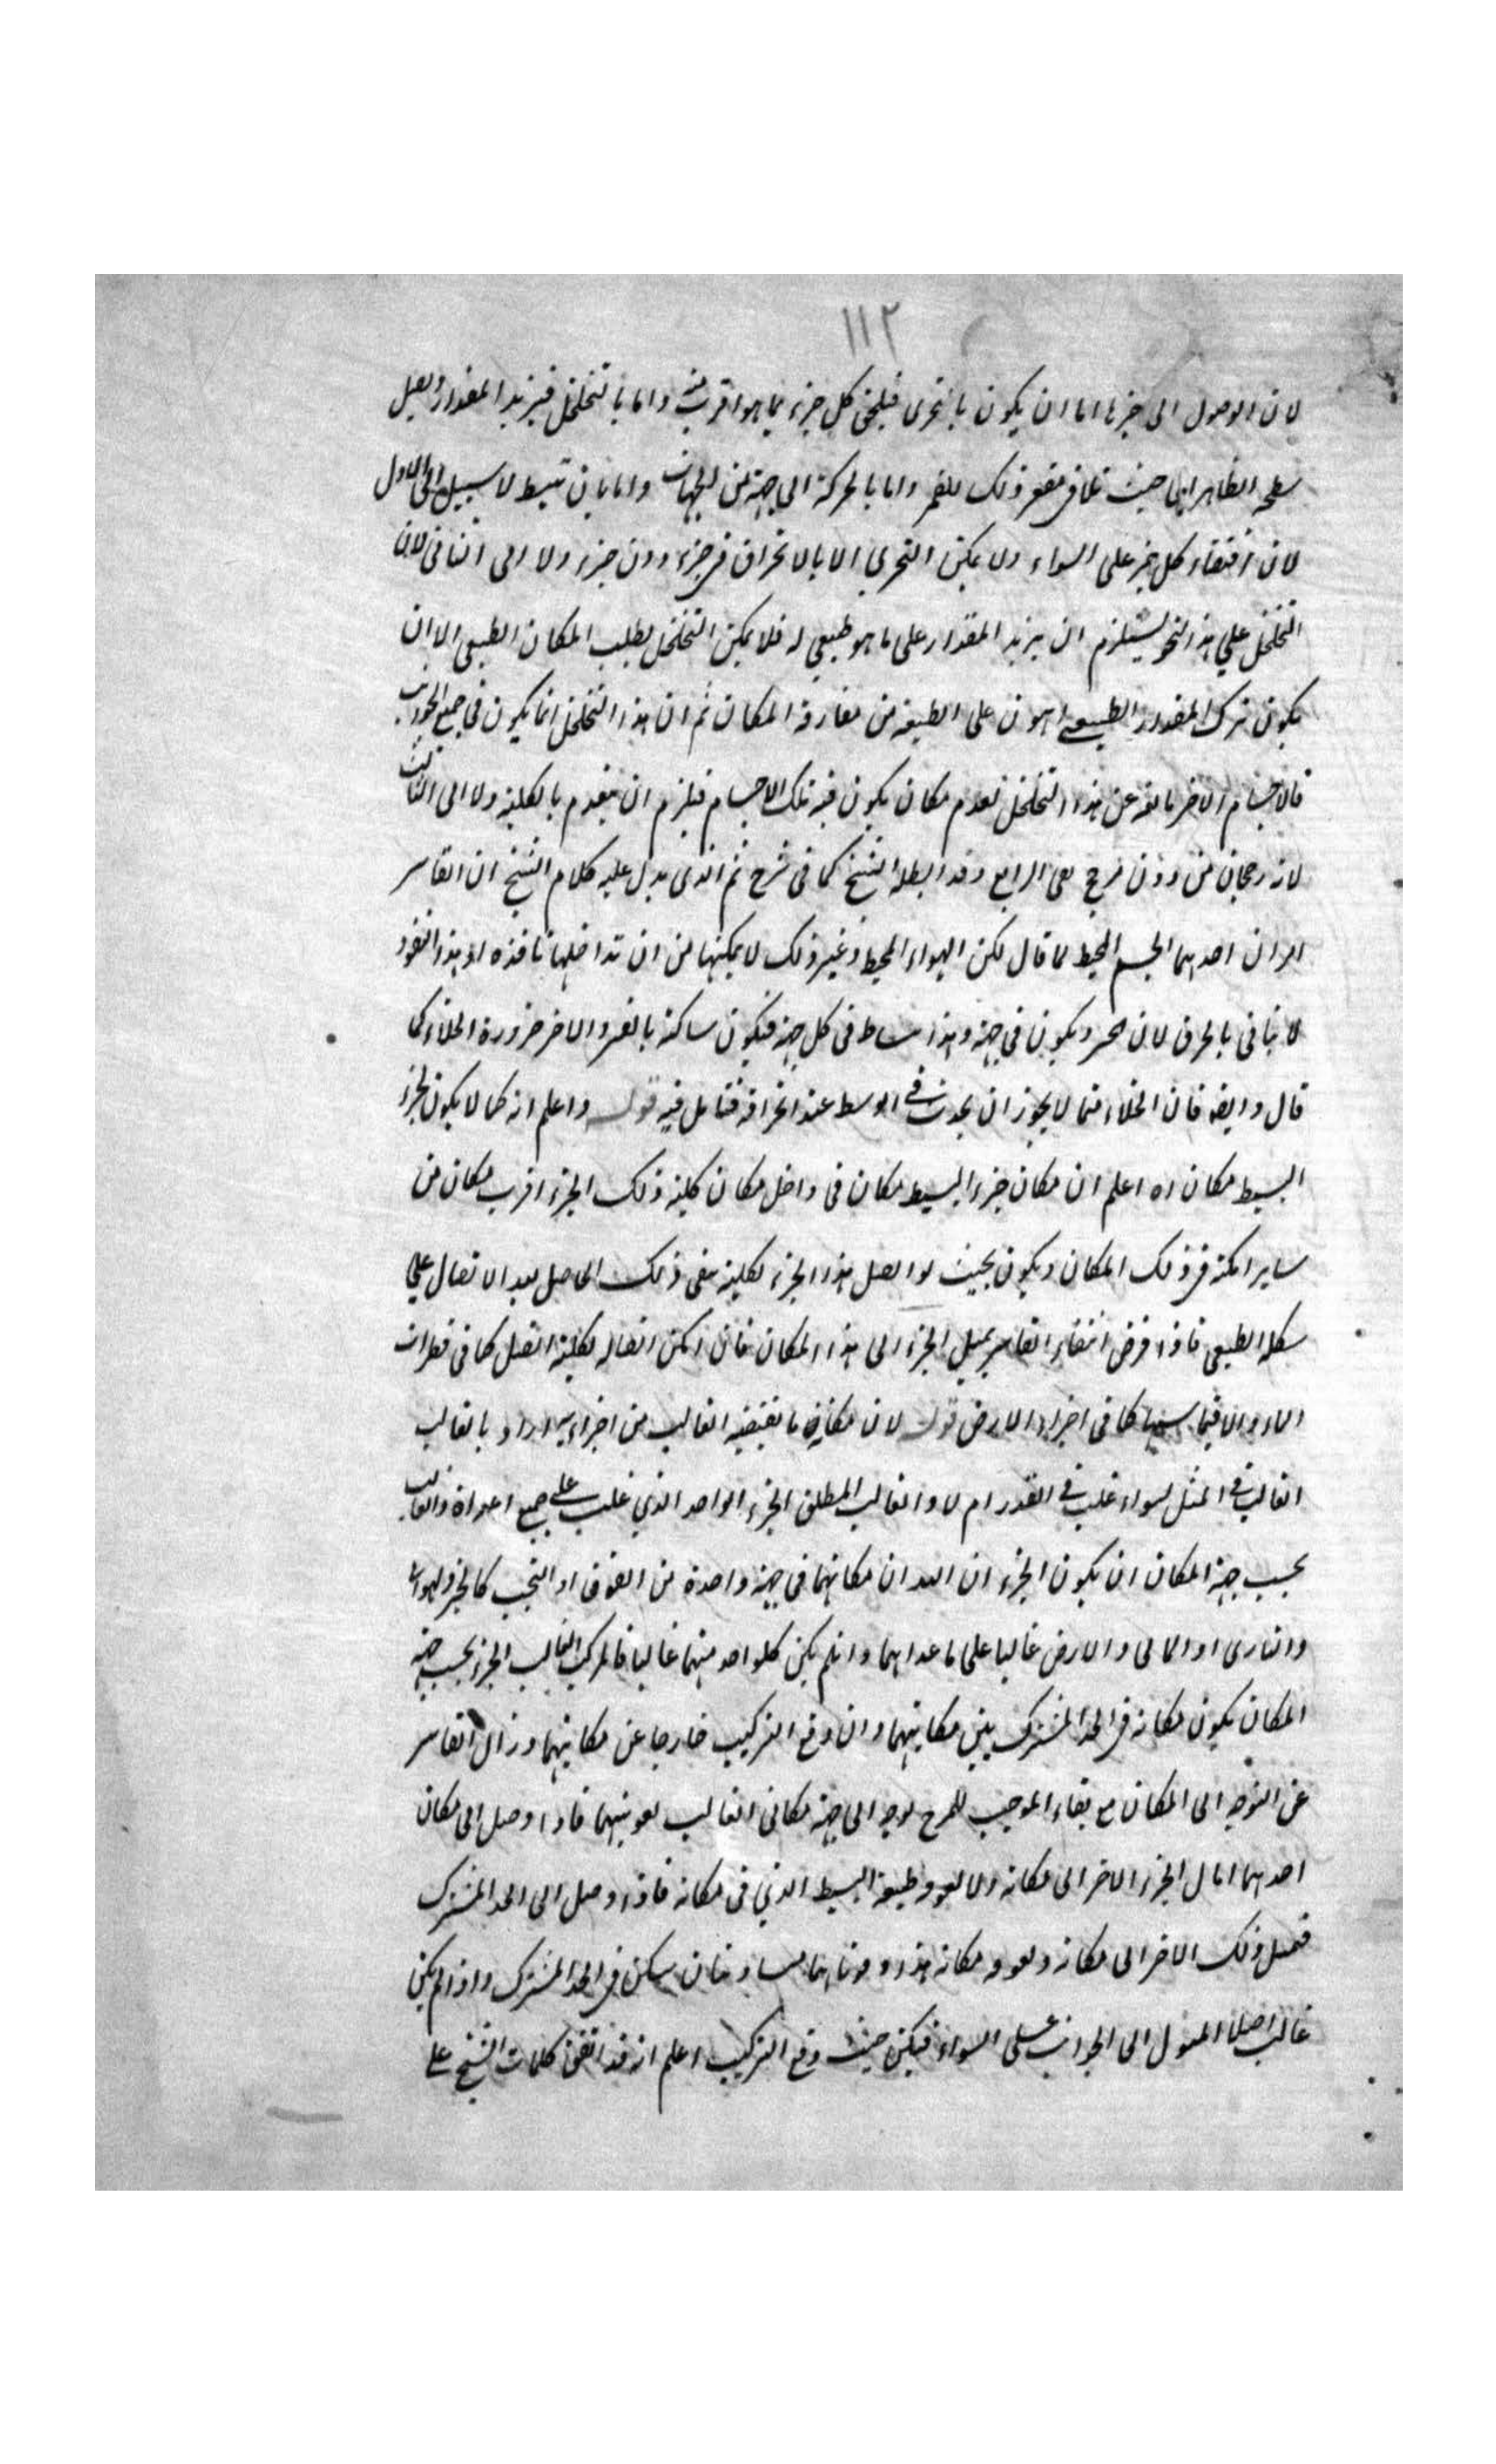 ١١٢
لان الوصول الى حيزها اما ان يكون بالتحرى فيلحق كل جزء بما هو اقرب منه واما بالتخلخل فيزيد المقدار ويصل
سطحه الظاهر الى حيث تلاقى مقعر فلك القمر واما بالحركة الى جهة من الجهات واما بان تنبسط لا سبيل الى الاول
لان اقتضاء كل جزء على السواء ولا يمكن التحرى الا بالانخراق فى جزء دون جزء ولا الى الثانى لان
التخلخل على هذا النحو يستلزم ان يزيد المقدار على ما هو طبيعى له فلا يمكن التخلخل لطلب المكان الطبيعى الا ان
يكون ترك المقدار الطبيعى اهون على الطبيعة من مفارقة المكان ثم ان هذا التخلخل انما يكون فى جميع الجوانب
فالاجسام الاخر مانعة عن هذا التخلخل لعدم مكان يكون فيه تلك الاجسام فيلزم ان ينعدم بالكلية ولا الى الثالث
لانه رجحان من دون مرجح بقى الرابع وقد ابطله الشيخ كما فى شرح ثم الذى يدل عليه كلام الشيخ ان القاسر
امران احدهما الجسم المحيط لما قال لكن الهواء المحيط وغير ذلك لا يمكنها من ان تداخلها نافذه اذ هذا النفوذ
لا ينافى بالخرق لان يكون فى جهة وهذا فى كل جهة فيكون ساكنة بالقسر والاخر ضرورة الخلاء كما
قال وايضا فان الخلاء مما لا يجوز ان يحدث فى الوسط عند انخراقه فتامل فيه قوله واعلم انه كما لا يكون لجزء
البسيط مكان اه اعلم ان مكان جزء البسيط مكان فى داخل مكان كلية ذلك الجزء اقرب مكان من
ساير امكنة فى ذلك المكان ويكون بحيث لو اتصل هذا الجزء لكليته بقى ذلك الحاصل بعد الاتصال على
شكله الطبيعى فاذا فرض انتفاء القاسر يميل الجزء الى هذا المكان فان امكن اتصاله لكليته اتصل كما فى قطرات
الماء والا كما فى اجزاء الارض قوله لان مكانه ما يقتضيه الغالب من اجزاءه اراد بالغالب
الغالب فى الميل سواء غلب فى القدر ام لا والغالب المطلق الجزء الواحد الذى غلب على جميع اعداه والغالب
بحسب جهة المكان ان يكون الجزء ان اللذان مكانهما فى جهة واحدة من الفوق او التحت كالجزء الهوائى
والنارى او المائى والارض غالبا على ما عداهما وان لم يكن كلواحد منهما غالبا فالمركب الغالب الجزء بحسب جهة
المكان يكون مكانه فى الحد المشترك بين مكانيهما وان وقع التركيب خارجا عن مكانيهما وزال القاسر
عن التوجه الى المكان مع بقاء الموجب للمزج توجه الى جهة مكانى الغالب فاذا وصل الى مكان
احدهما امال الجزء الاخر الى مكانه ولا طبيعة البسيط الذى فى مكانه فاذا وصل الى الحد المشترك
فيميل ذلك الاخر الى مكانه مكانه هذا متساويتان يسكن فى الحد المشترك واذا لم يكن
غالب اصلا الميول الى الجوانب على السواء فيكن حيث وقع التركيب اعلم انه قد اتفق كلمات الشيخ على